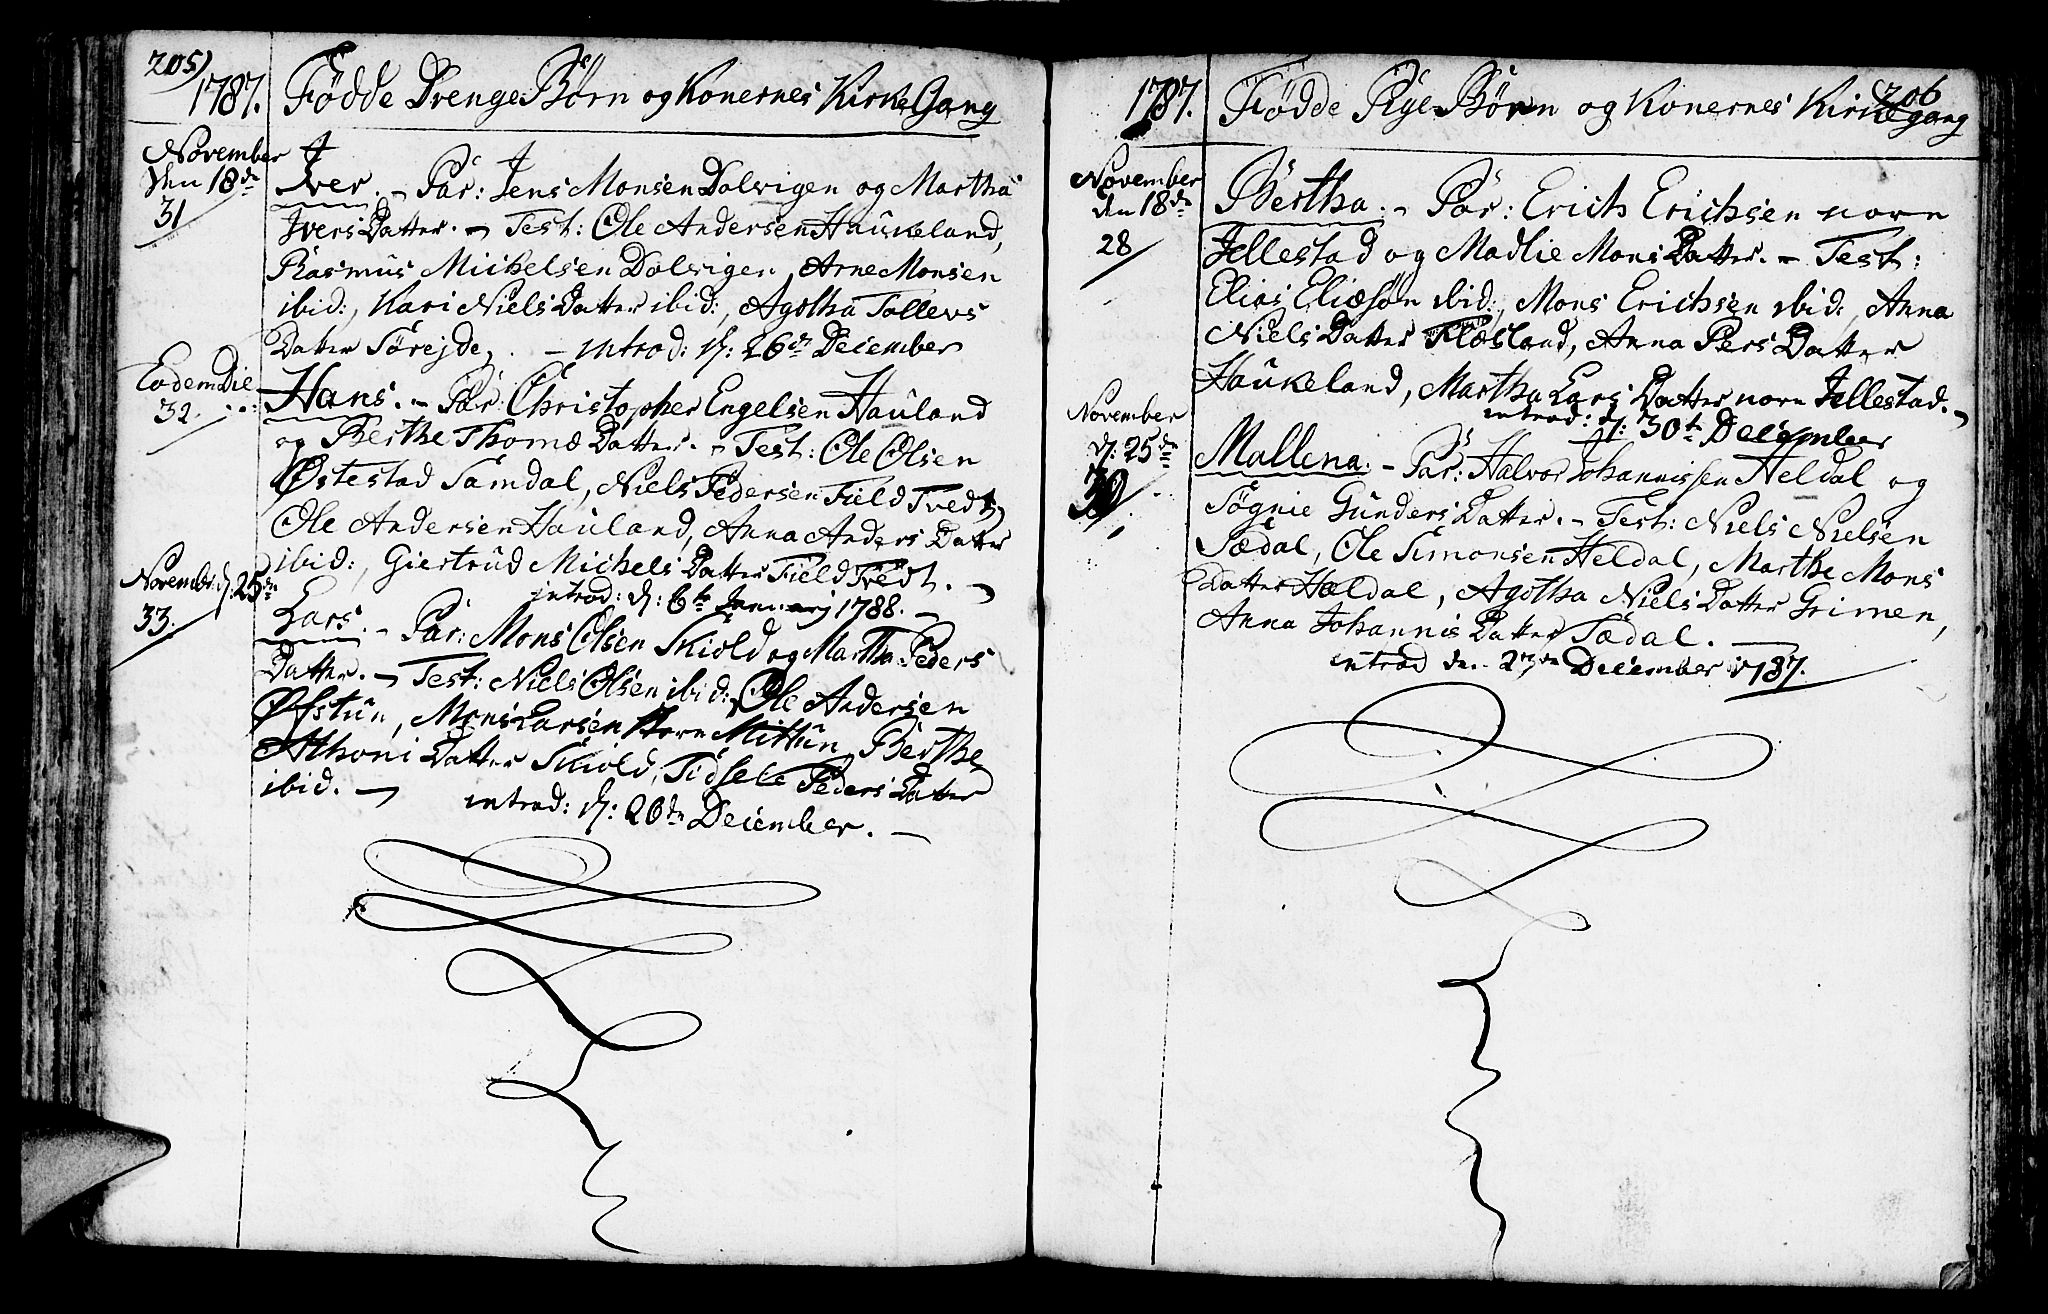 205)
1787. Fødde Drenge Børn og Konernes Kirke Gang
November
den 18de
31
Iver. - Par: Jens Monsen Dolvigen og Martha
Ivers Datter. - Test: Ole Andersen Haukeland,
Rasmus Michelsen Dolvigen, Arne Monsen
ibid:, Kari Niels Datter ibid:, Agotha Tollevs
Datter Sørejde, . - introd: d: 26de December
Eodem Die
32.
Hans. - Par: Christopher Engelsen Hauland
og Berthe Thomæ Datter. - Test: Ole Olsen
Østestad Samdal, Niels Pedersen Field Tvedt,
Ole Andersen Hauland, Anna Anders Datter
ibid:, Giertrud Michels Datter Field Tvedt. -
introd: d: 6te Januarij 1788. -
Novemb: d: 25de
33.
Lars. - Par: Mons Olsen Skiold og Martha Peders
Datter. - Test: Niels Olsen ibid:, Ole Andersen
Øfstun, Mons Larsen Horn Mittun, Berthe
Athoni Datter Skiold, Sidsele Peders Datter
ibid. - introd: d: 26de December. -
206
1787. Fødde Pige Børn og Konernes Kirkegang
November
den 18de
28
Bertha. - Par: Erich Erichsen norn
Jellestad og Madlie Mons Datter. - Test:
Elias Eliæsøn ibid:, Mons Erichsen ibid:, Anna
Niels Datter Flæsland, Anna Pers Datter
Haukeland, Martha Lars Datter norn Jellestad. -
introd: d: 30te December
November
d: 25de
30
Mallena. - Par: Halvor Johannissen Heldal og
Søgnie Gunders Datter. - Test: Niels Nielsen
Sædal, Ole Simonsen Heldal, Marthe Mons
Datter Hældal, Agotha Niels Datter Grimen,
Anna Johannis Datter Sædal. -
introd den 27de December 1787.